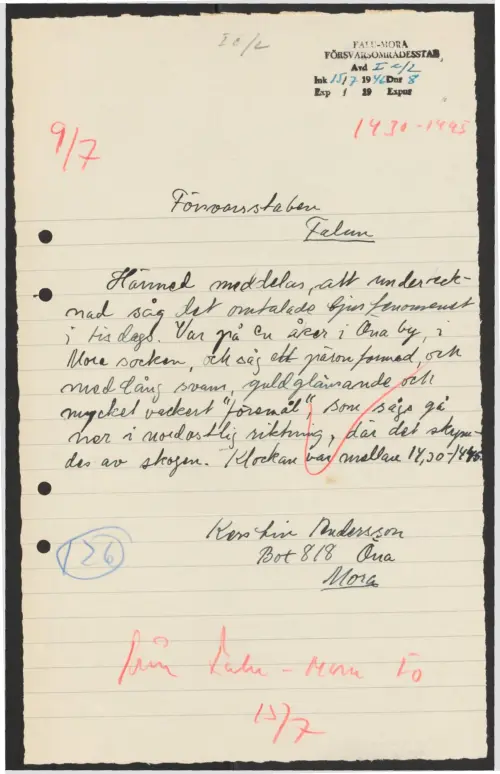 I c/2
FALU-MORA
FÖRSVARSOMRÅDESSTAB
Avd I c/2
Ink 15/7 1946 Dnr 8
Exp / 19 Expnr
9/7
1430-1445
Försvarsstaben
Falun
Härmed meddelas, att underteck-
nad såg det omtalade ljusfenomenet
i tisdags. Var på en åker i Öna by, i
Mora socken, och såg ett päronformed, och
med lång svans, guldglänsande och
mycket vackert "föremål", som sågs gå
ner i nordostlig riktning, där det skym-
des av skogen. Klockan var mellan 14,30-1445.
Kerstin Andersson
Box 818 Öna
Mora
126
från Falu-Mora Fo
15/7